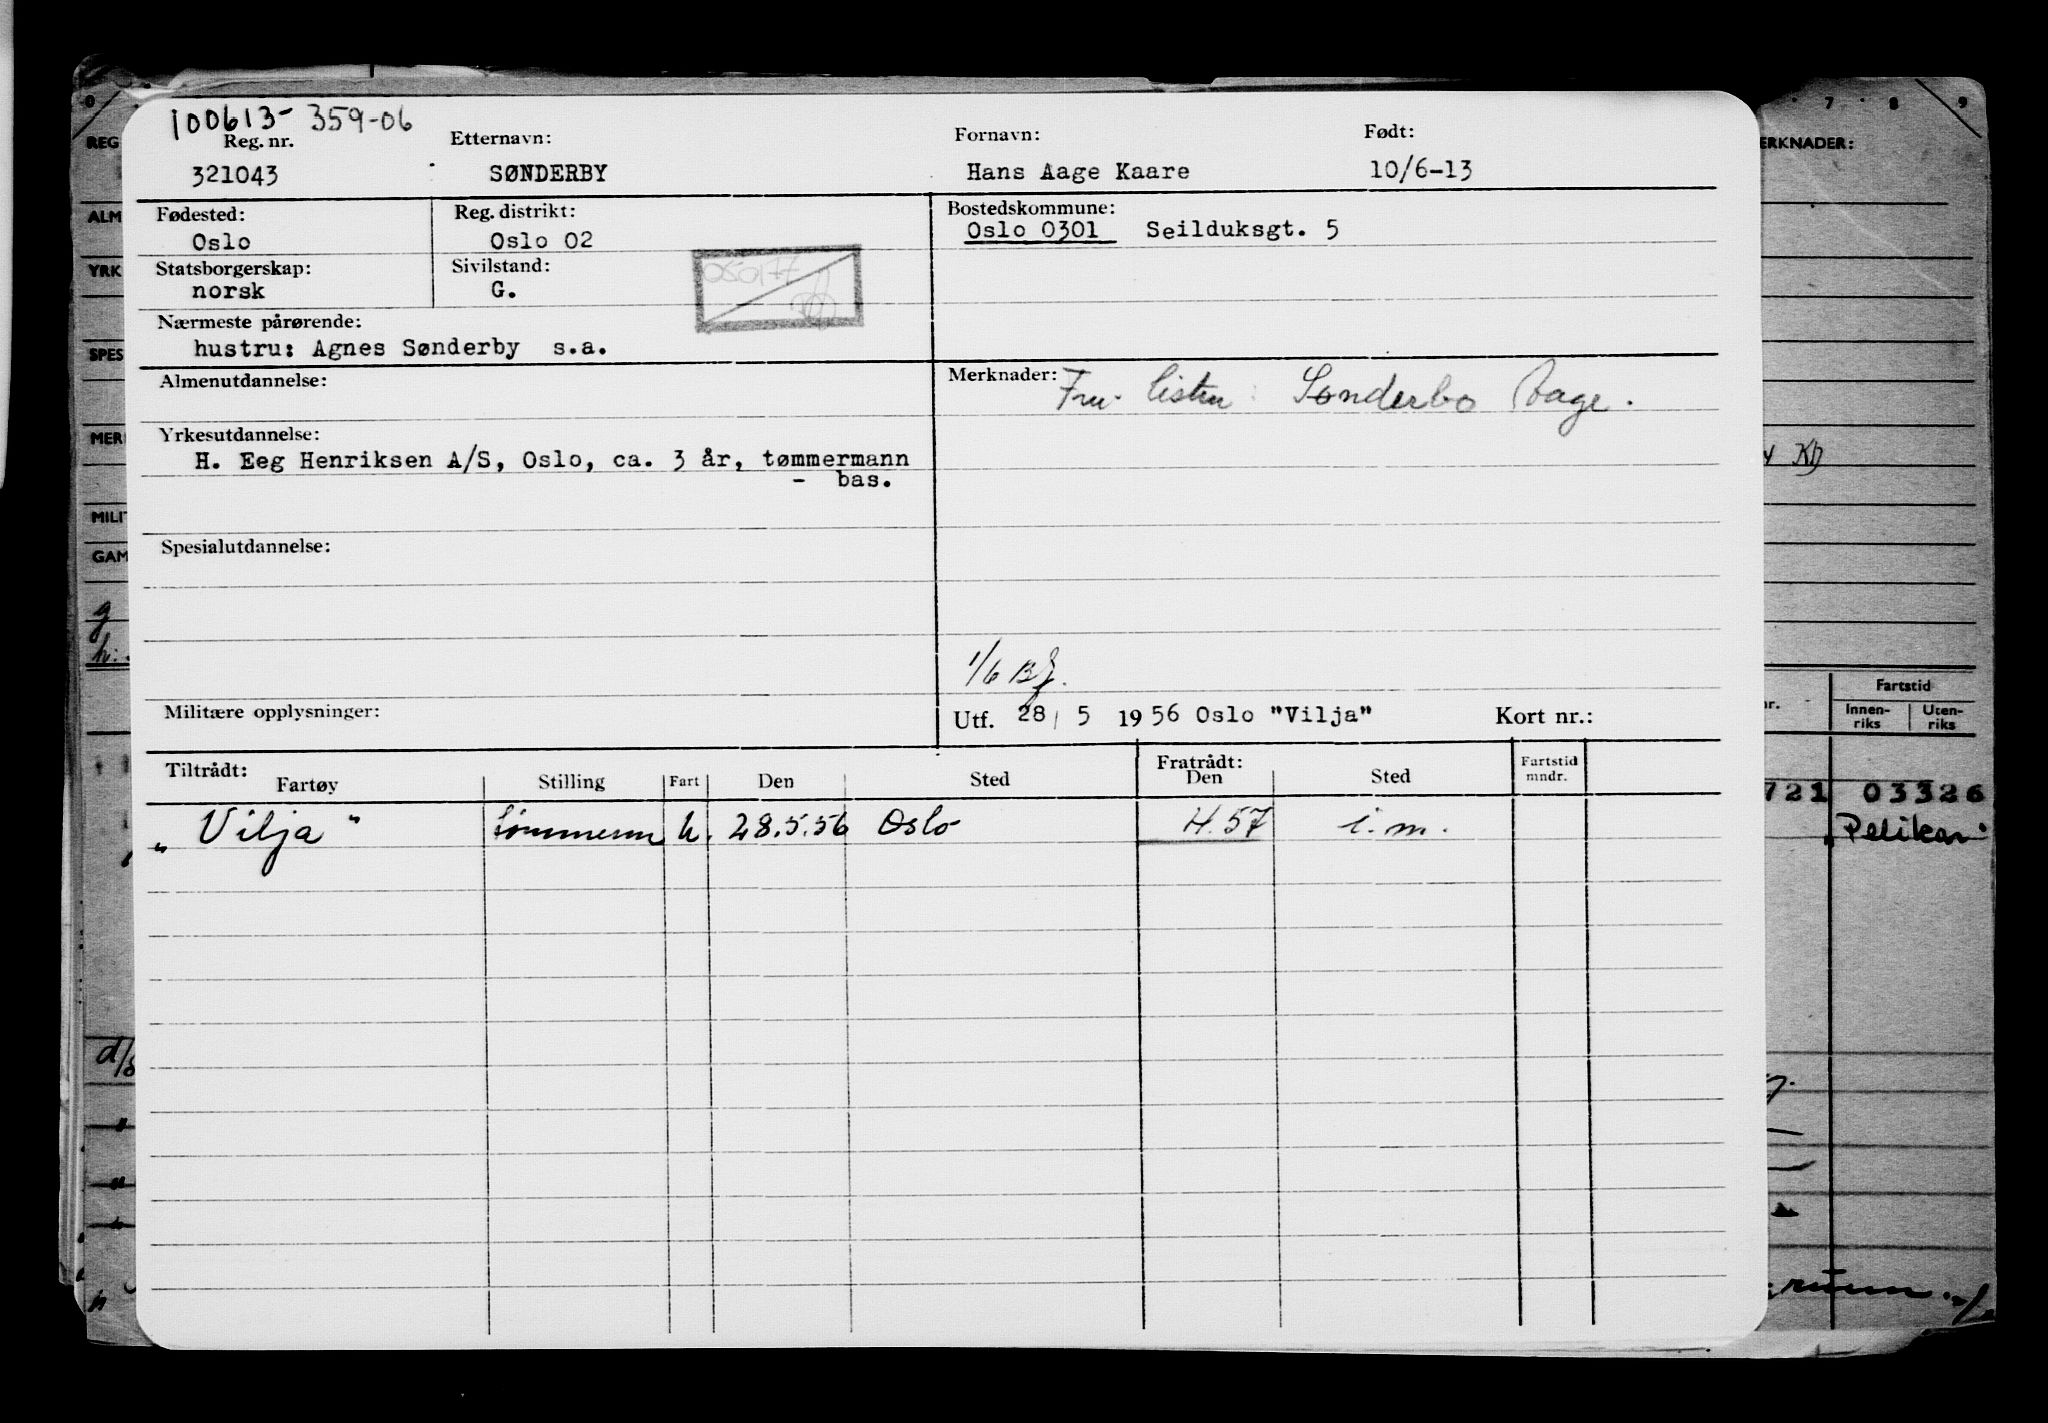 100613-359-06
Reg. nr. Etternavn: Fornavn: Født:
321043 SØNDERBY Hans Aage Kaare 10/6-13
Fødested: Reg. distrikt: Bostedskommune:
Oslo Oslo 02 Oslo 0301 Seilduksgt. 5
Statsborgerskap: Sivilstand:
norsk G.
050177
Nærmeste pårørende:
hustru: Agnes Sønderby s.a.
Almenutdannelse: Merknader:
Sønderbo Aage.
Yrkesutdannelse:
H. Eeg Henriksen A/S, Oslo, ca. 3 år, tømmermann
- bas.
Spesialutdannelse:
1/6 BJ.
Militære opplysninger: Utf. 28/ 5 1956 Oslo "Vilja" Kort nr.:
Tiltrådt: Fratrådt: Fartstid
Fartøy Stilling Fart Den Sted Den Sted mndr.
"Vilja" tømmerm u. 28.5.56 Oslo 4.57 i.m.
0
REG
ALM
YRK
SPES
MER
MILIT
GAM
g
h.
d/s
7 8 9
ERKNADER:
KD
nr. Fartstid
Innen-riks Uten-riks
721 03326
"Pelikan"